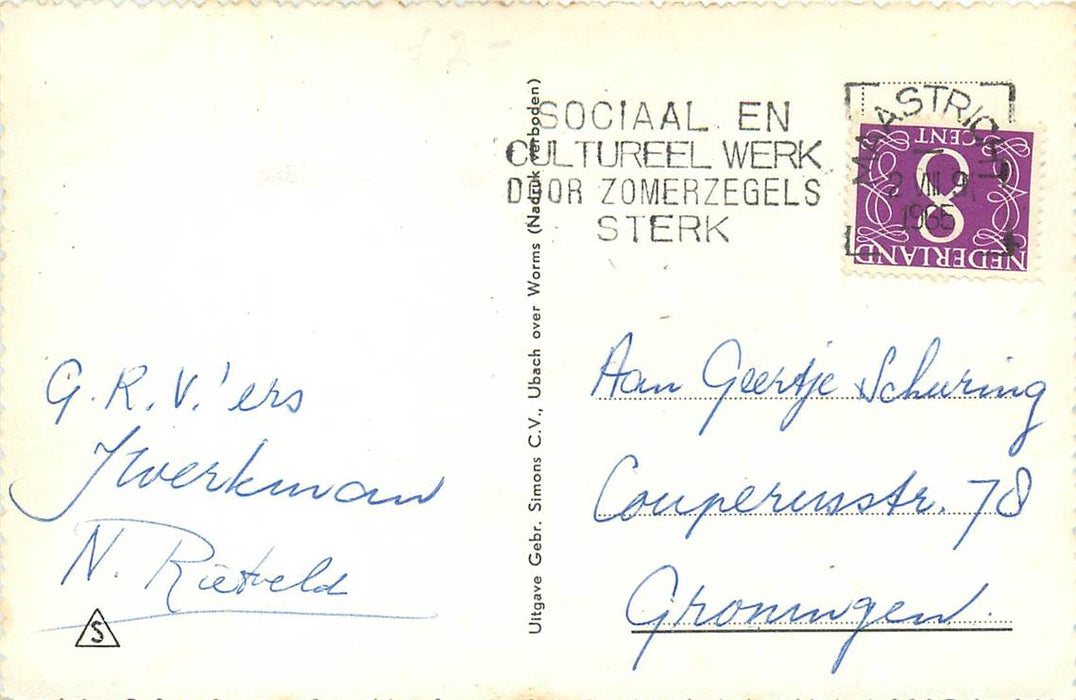 SOCIAAL EN
CULTUREEL WERK
DOOR ZOMERZEGELS
STERK
MAASTRICHT
2 VIII 9
1965
8
CENT
NEDERLAND
Uitgave Gebr. Simons C.V., Ubach over Worms (Nadruk verboden)
G.R.V.'ers
JWerkman
N. Rietveld
S
Aan Geertje Schuring
Couperusstr. 78
Groningen.